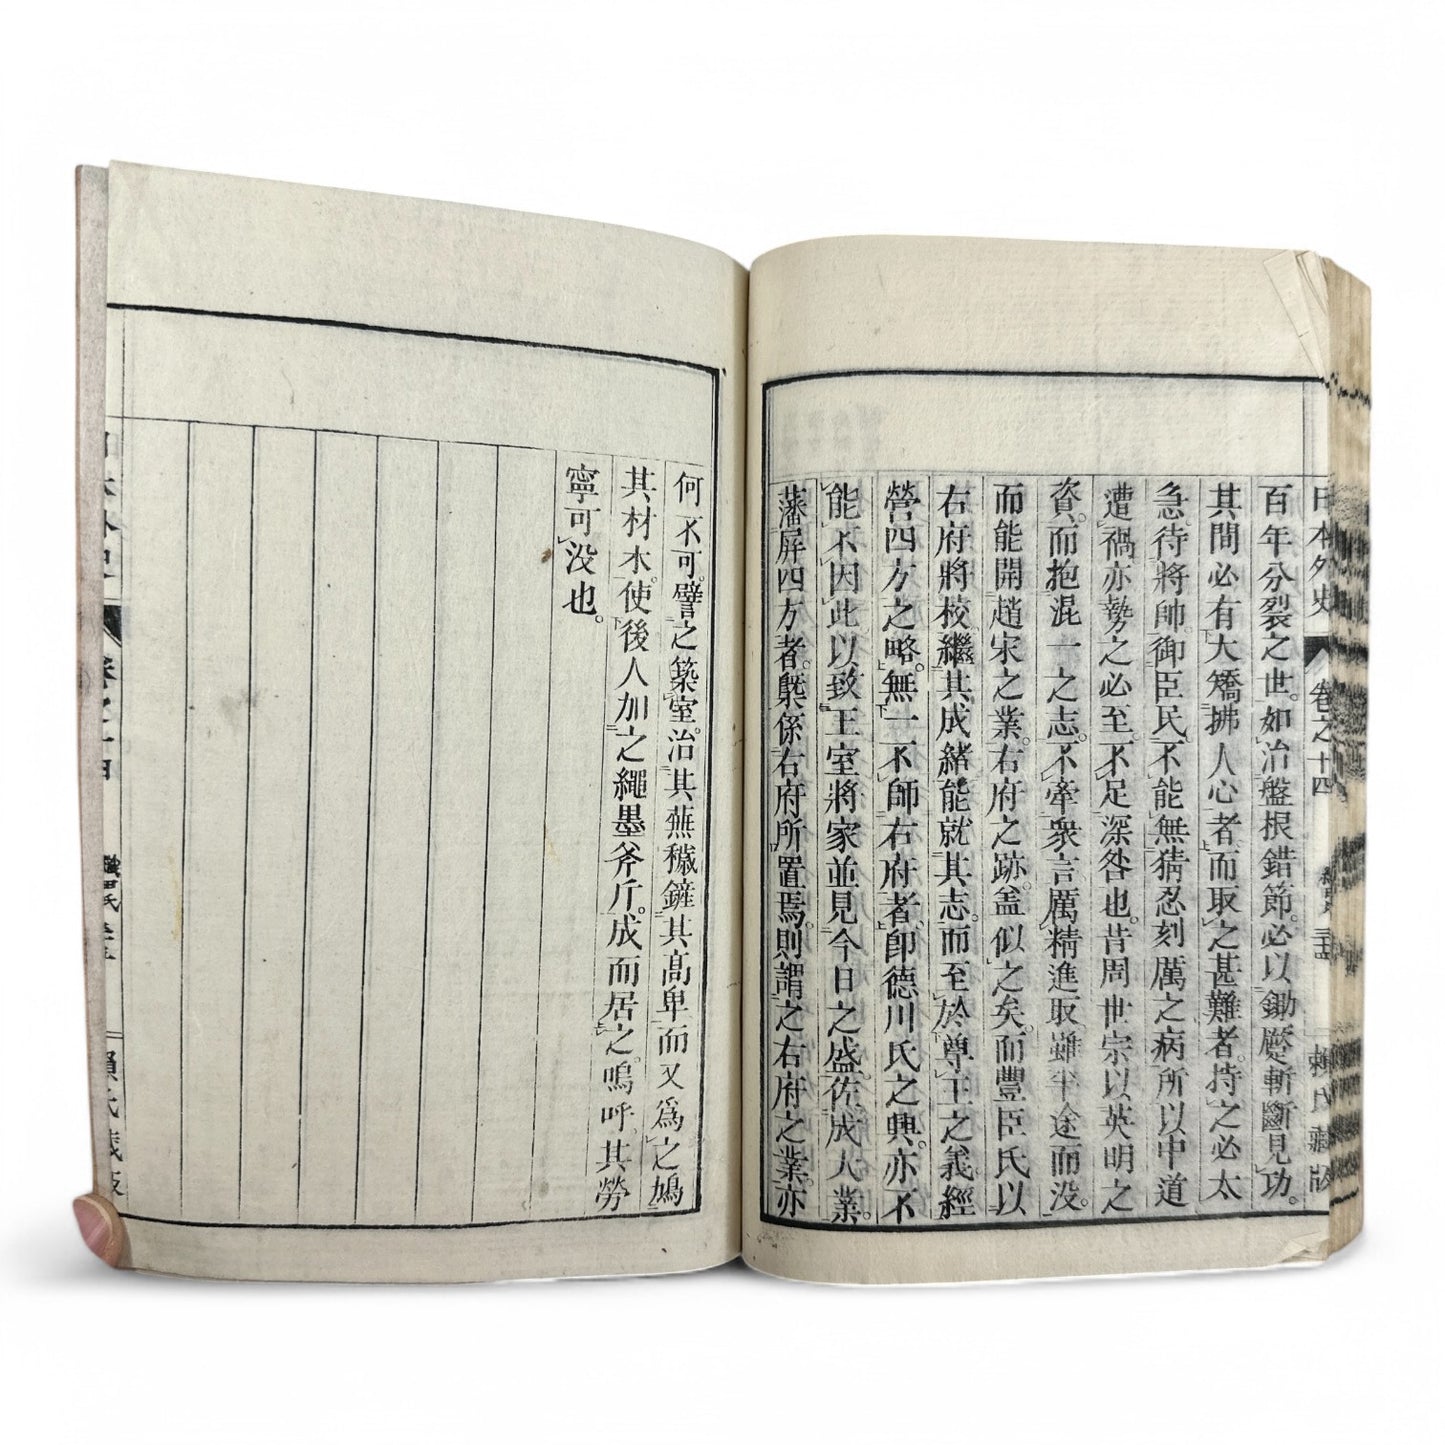 日本外史 卷之十四 賴氏藏版
百年分裂之世。如治盤根錯節。必以鋤㔉斬斷見功。
其間必有大矯拂人心者。而取之甚難者。持之必太
急。待將帥。御臣民。不能無猜忍刻厲之病。所以中道
遭禍。亦勢之必至。不足深咎也。昔周世宗以英明之
資。而抱混一之志。不牽衆言。厲精進取。雖半途而没。
而能開趙宋之業。右府之跡。盖似之矣。而豐臣氏以
右府將校繼其成緒。能就其志。而至於尊王之義。經
營四方之略。無一不師右府者。卽德川氏之興。亦不
能不因此以致王室將家並見今日之盛。佐成大業。
藩屏四方者。槩係右府所置焉。則謂之右府之業。亦
何不可。譬之築室。治其蕪穢。鏟其高卑。而又爲之鳩
其材木。使後人加之繩墨斧斤。成而居之。嗚呼。其勞
寧可没也。
日本外史 卷之十四 賴氏藏版